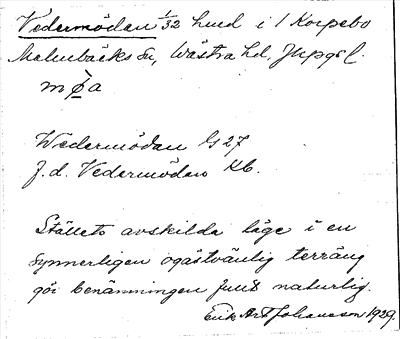 Vedermödan 1/32 hmd i 1 Korpebo
Malmbäcks sn, Västra hd, Jkpgs l.
mø̀a
Wedermödan G 27
f. d. Vedermödan Kb.
Ställets avskilda läge i en
synnerligen ogästvänlig terräng
gör benämningen fullt naturlig.
Erik Art Johansson 1929.